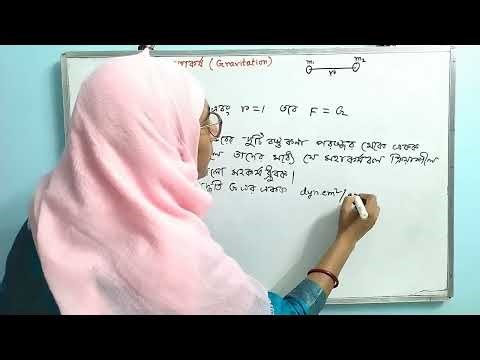 (Gravitation)
m₁ m₂
r
r = 1 তবে F = G
দুটি বস্তুকণা পরস্পর থেকে একক
তাদের মধ্যে যে মহাকর্ষবল ক্রিয়াশীল
মহাকর্ষ ধ্রুবক।
G এর একক dyn cm²/